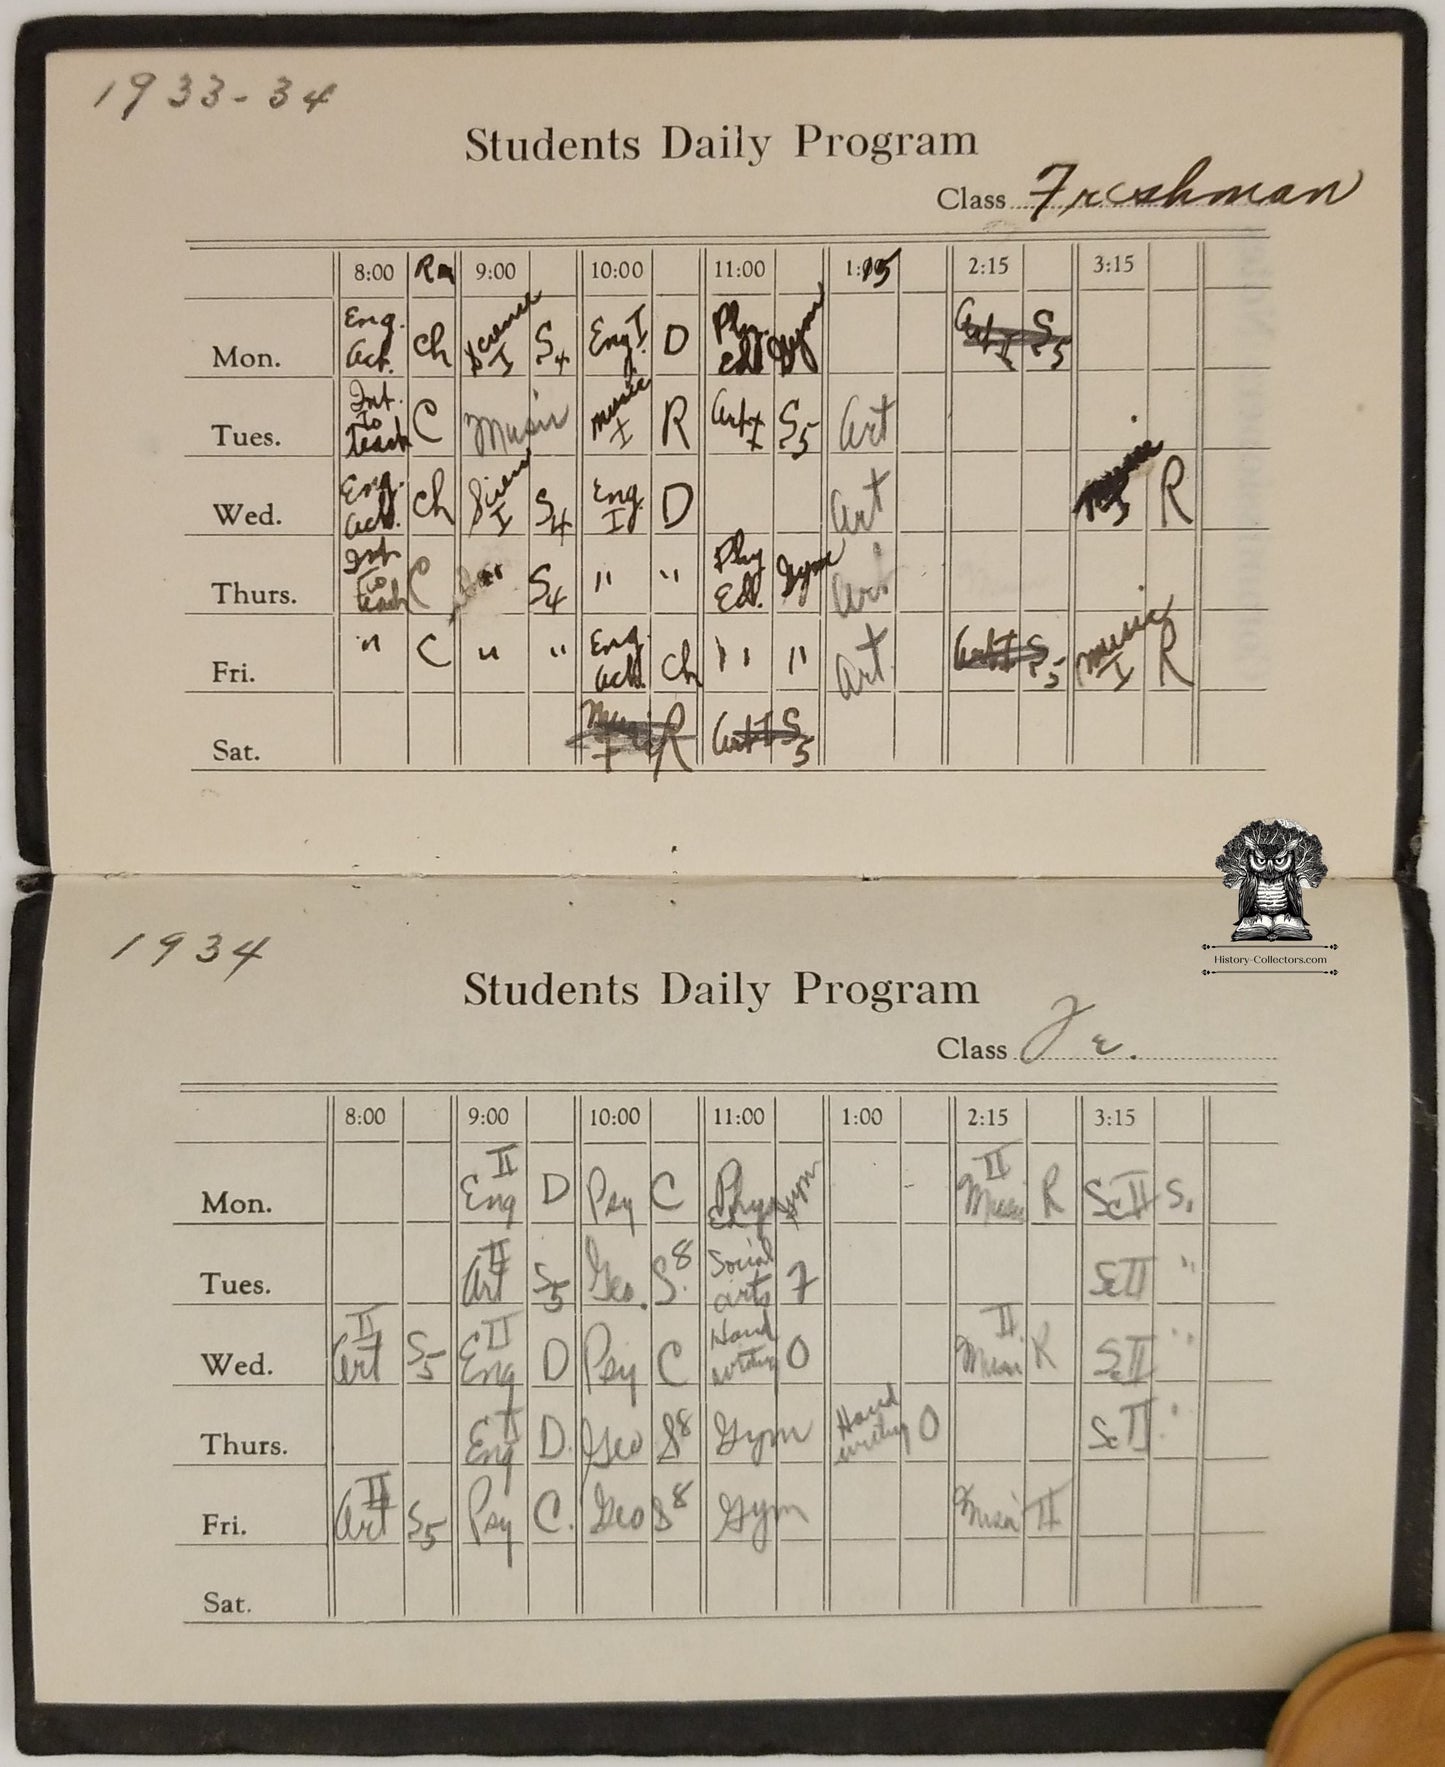 1933-34
Students Daily Program
Class Freshman
8:00 Rm 9:00 10:00 11:00 1:15 2:15 3:15
Mon. Eng. Act. Ch Science I S4 Eng I. D Phy. Ed. Gym Art I S5
Tues. Int. to teach C Music Music I R Art I S5 Art
Wed. Eng. Act. Ch Science I S4 Eng. I D Art R
Thurs. Int to teach C S4 " " Phy Ed. Gym Art
Fri. " C " " Eng. Act. Ch " " Art Art I S5 Music I R
Sat. Music I R Art I S5
History-Collectors.com
1934
Students Daily Program
Class
8:00 9:00 10:00 11:00 1:00 2:15 3:15
Mon. Eng II D Psy C Phys Ed Gym Music II R Sc II S.
Tues. Art II S5 Geo. S.8 Social arts 7 Sc II "
Wed. Art II S5 Eng II D Psy C Hand writing O Music II R Sc II "
Thurs. Eng II D. Geo S8 Gym Hand writing O Sc II "
Fri. Art II S5 Psy C. Geo S8 Gym Music II
Sat.